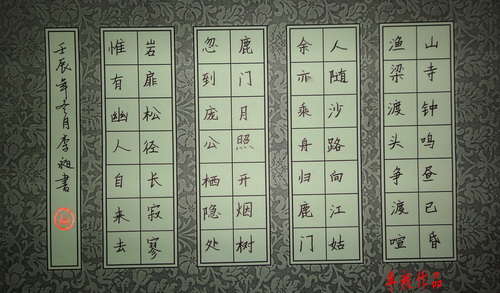 山寺钟鸣昼已昏
渔梁渡头争渡喧
人随沙路向江姑
余亦乘舟归鹿门
鹿门月照开烟树
忽到庞公栖隐处
岩扉松径长寂寥
惟有幽人自来去
壬辰年冬月李書
作品